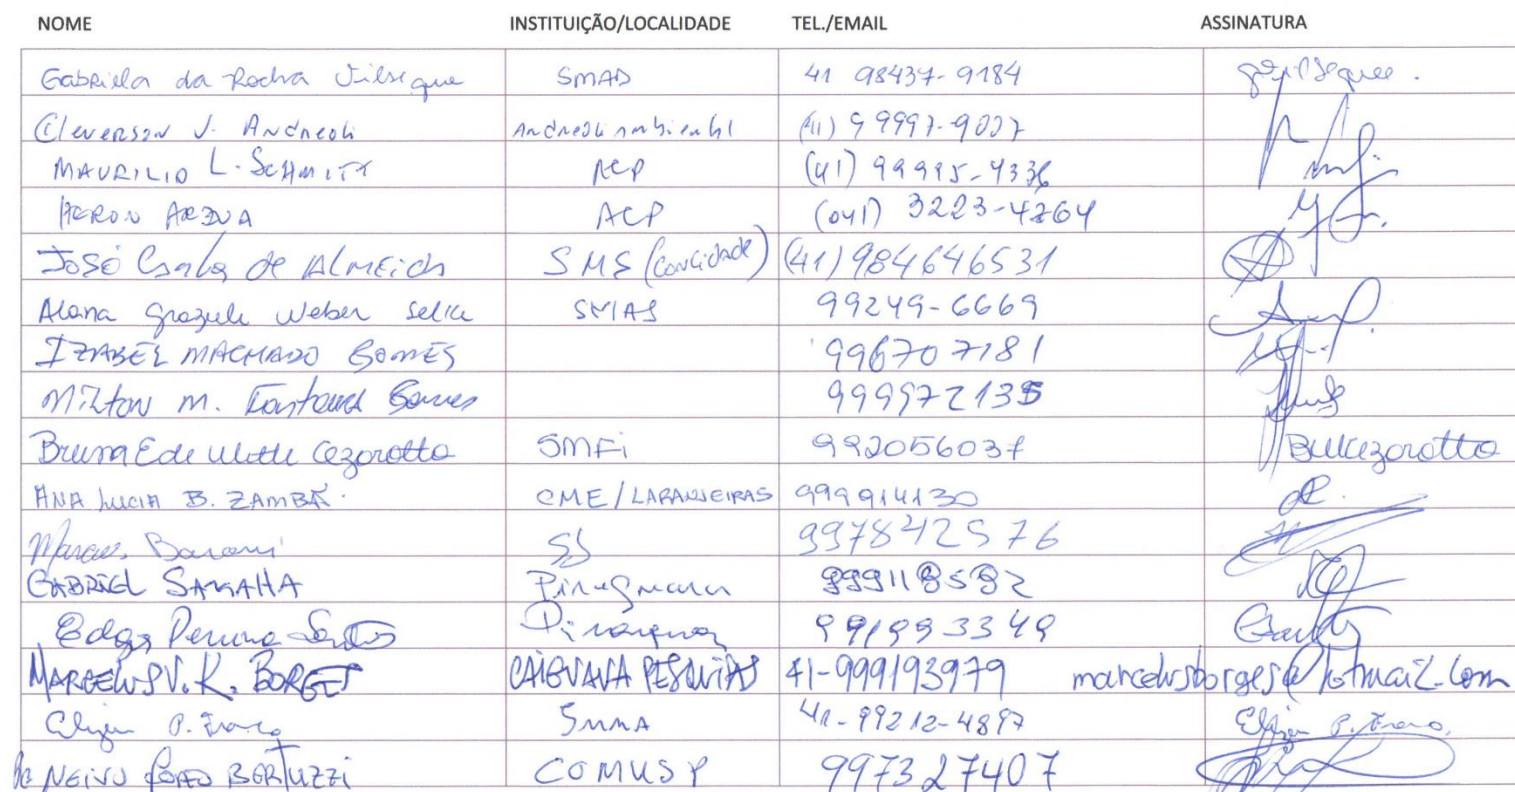 NOME INSTITUIÇÃO/LOCALIDADE TEL./EMAIL ASSINATURA
Gabriela da Rocha SMAD 41 98437-9184
Cleverson J. Andreoli Andreoli ambiental (41) 9 9997-9007
MAURILIO L. SCHMITT ACP (41) 99995-4336
ACP (041) 3223-4264
José Carlos de Almeida SMS (Concidade) (41) 984646531
Alana Weber SMAS 99249-6669
IZABEL MACHADO GOMES 996707181
Milton M. 999972135
Bruna Cezarotto SMFi 992056037 Cezarotto
ANA LUCIA B. ZAMBÃ. CME/LARANJEIRAS 999914130
Marcus 997842576
GABRIEL SAMAHA Piraquara 999118582
Edgar Santos Piraquara 991993349
MARCELUS V. K. BORGES PESQUISAS 41-999193979 marcelusborges@hotmail.com
P. Franco SMMA 41-99212-4897 P. Franco
NEIVO BERTUZZI COMUSP 997327407